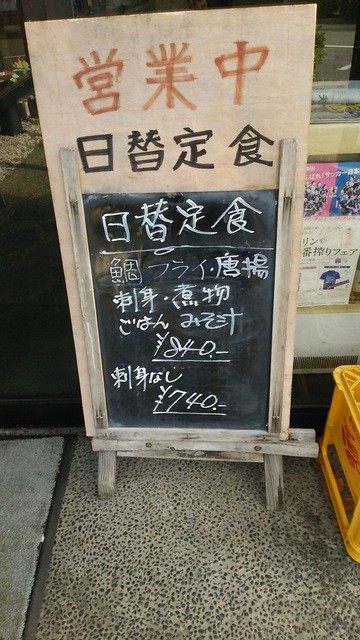 営業中
日替定食
日替定食
鯛フライ・唐揚
刺身・煮物
ごはん みそ汁
¥840.-
刺身なし
¥740.-
サッカー日本
一番搾りフェア